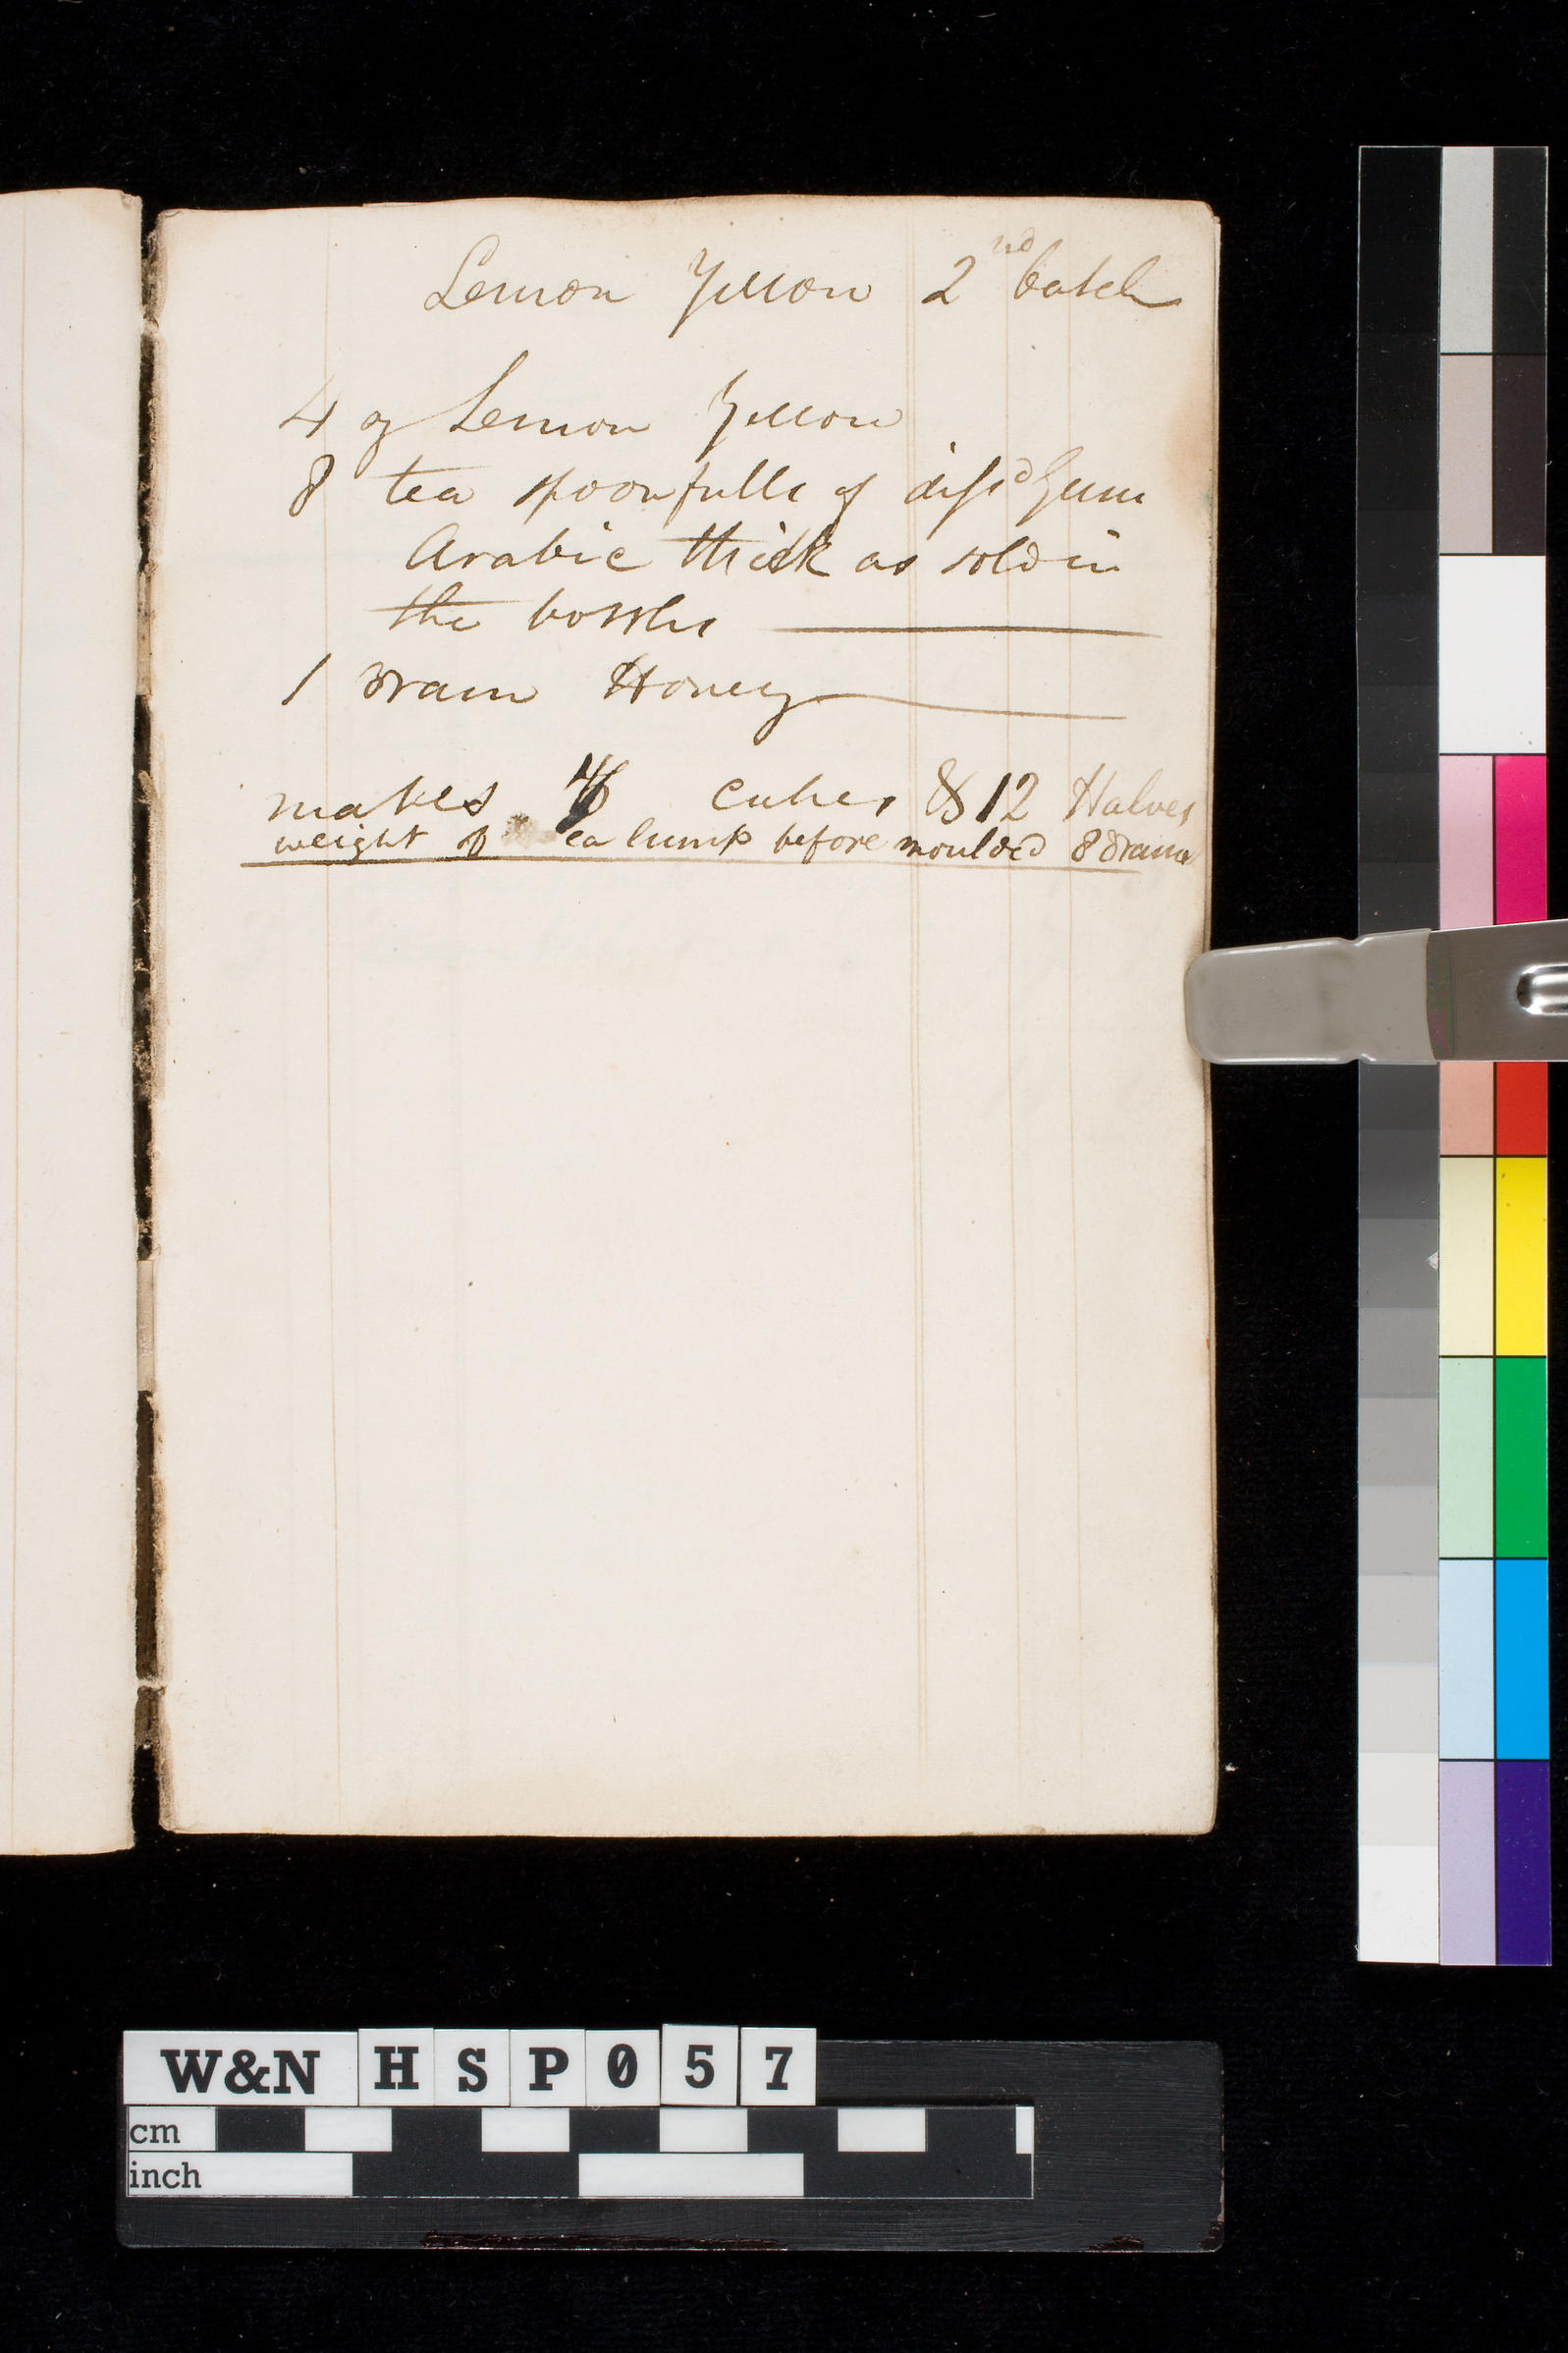 Lemon Yellow 2nd batch
4 oz Lemon Yellow
8 tea spoonfulls of dissd Gum
Arabic thick as sold in
the bottles
1 dram Honey
makes cubes & 12 Halves
weight of ea lump before moulded 8 drams
W&N HSP057
cm
inch